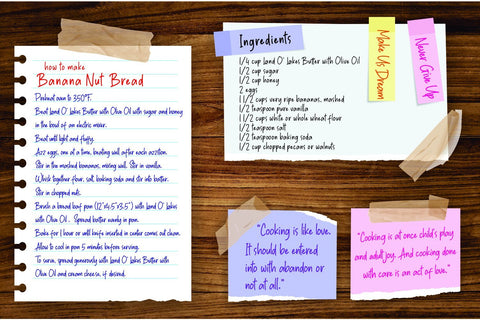 how to make
Banana Nut Bread
Preheat oven to 350°F.
Beat Land O' Lakes Butter with Olive Oil with sugar and honey
in the bowl of an electric mixer.
Beat until light and fluffy.
Azz eggs, one at a time, beating well after each azzition.
Stir in the mashed bananas, mixing well. Stir in vanilla.
Whisk together flour, salt, baking soda and stir into batter.
Stir in chopped nuts.
Brush a bread loaf pan (12"x4.5"x3.5") with Land O' Lakes
with Olive Oil. Spread batter evenly in pan.
Bake for 1 hour or until knife inserted in center comes out clean.
Allow to cool in pan 5 minutes before serving.
To serve, spread generously with Land O' Lakes Butter with
Olive Oil and cream cheese, if desired.
Ingredients
1/4 cup Land O' Lakes Butter with Olive Oil
1/2 cup sugar
1/2 cup honey
2 eggs
1 1/2 cups very ripe bananas, mashed
1/2 teaspoon pure vanilla
1 1/2 cups white or whole wheat flour
1/2 teaspoon salt
1/2 teaspoon baking soda
1/2 cup chopped pecans or walnuts
Make Us Dream
Never Give Up
"Cooking is like love.
It should be entered
into with abandon or
not at all."
"Cooking is at once child's play
and adult joy. And cooking done
with care is an act of love."